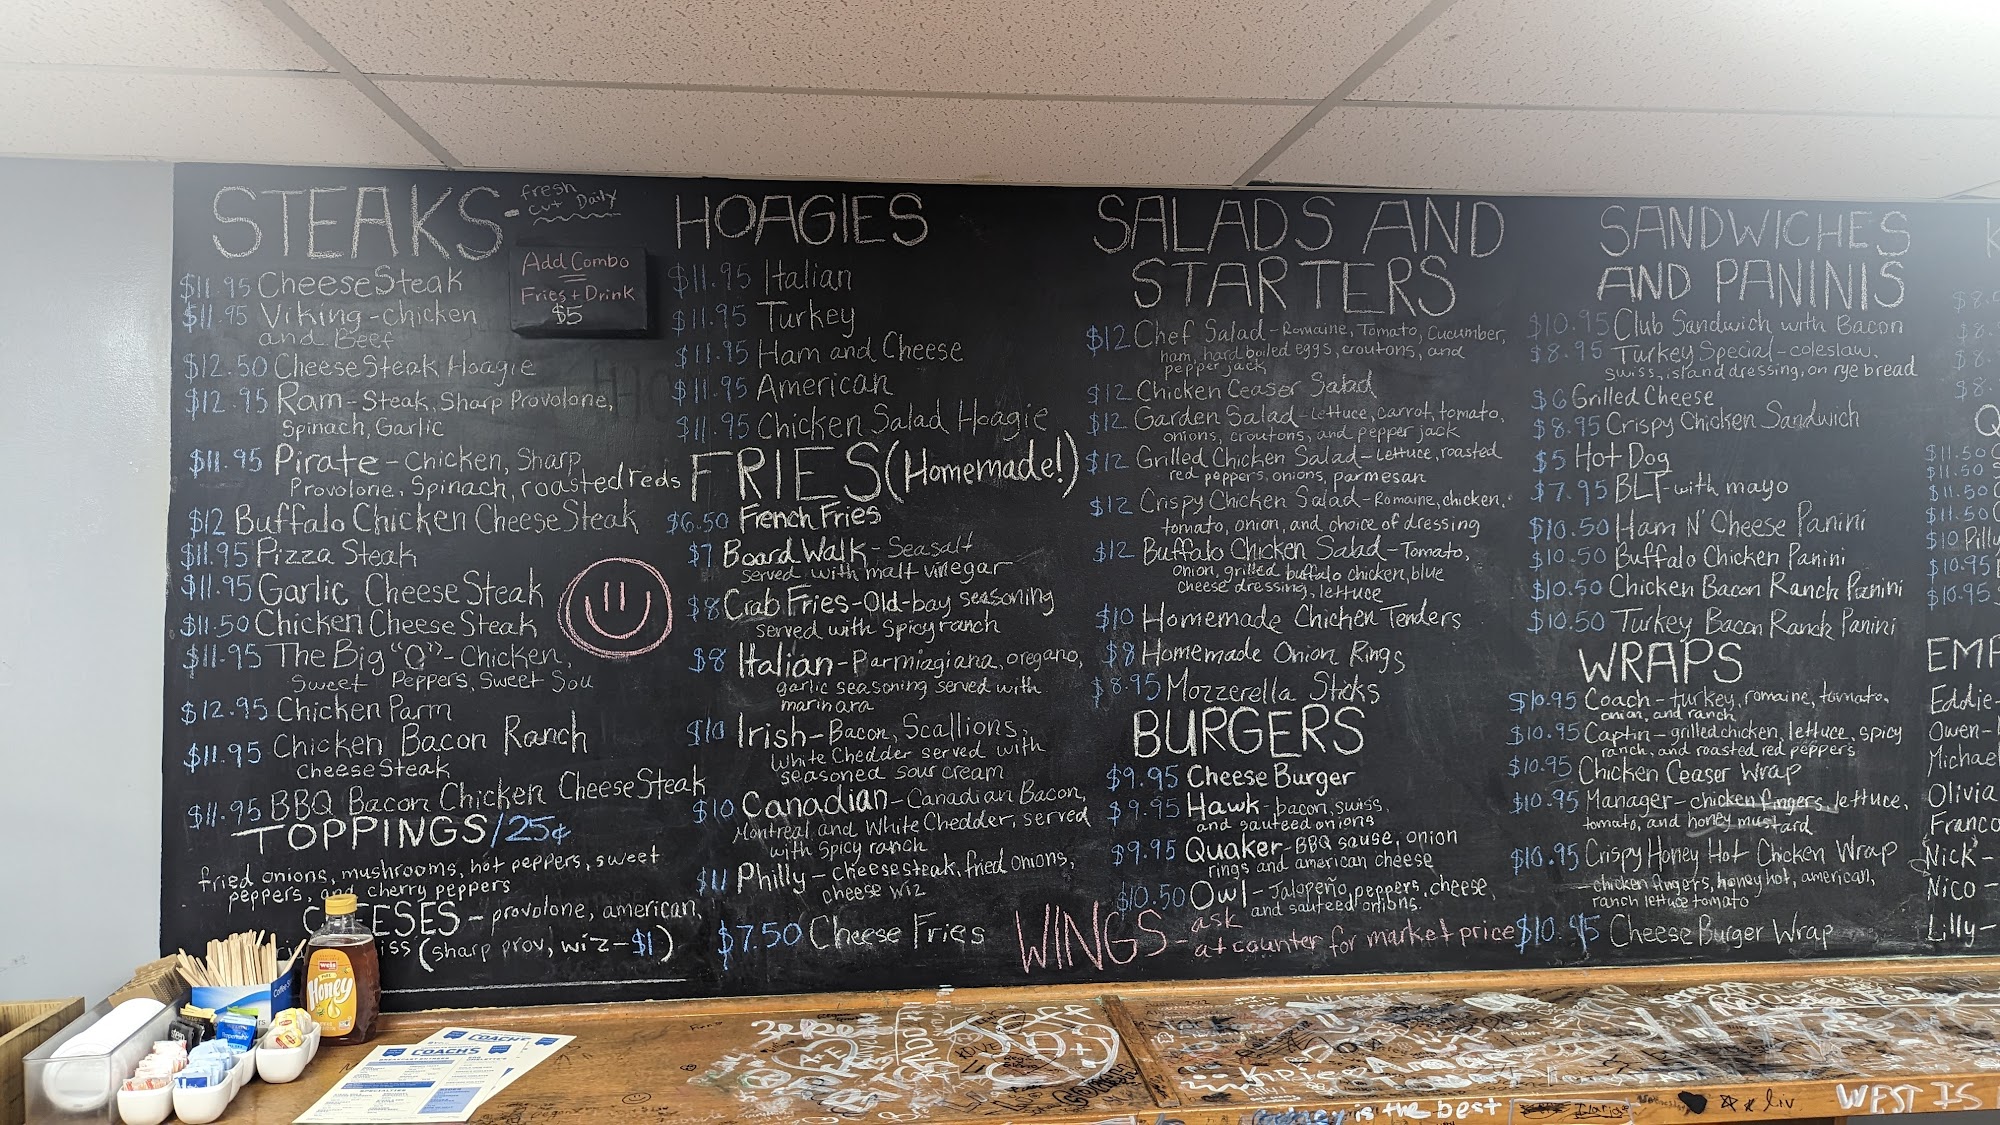 STEAKS - fresh
cut Daily
Add Combo
Fries + Drink
$5
$11.95 CheeseSteak
$11.95 Viking - chicken
and Beef
$12.50 CheeseSteak Hoagie
$12.95 Ram - Steak, Sharp Provolone,
Spinach, Garlic
$11.95 Pirate - Chicken, Sharp
Provolone, Spinach, roasted reds
$12 Buffalo Chicken CheeseSteak
$11.95 Pizza Steak
$11.95 Garlic CheeseSteak
$11.50 Chicken CheeseSteak
$11.95 The Big "O" - Chicken,
Sweet Peppers, Sweet Sou
$12.95 Chicken Parm
$11.95 Chicken Bacon Ranch
CheeseSteak
$11.95 BBQ Bacon Chicken CheeseSteak
TOPPINGS/25¢
fried onions, mushrooms, hot peppers, sweet
peppers, and cherry peppers
CHEESES - provolone, american,
iss (sharp prov, wiz - $1)
HOAGIES
$11.95 Italian
$11.95 Turkey
$11.95 Ham and Cheese
$11.95 American
$11.95 Chicken Salad Hoagie
FRIES (Homemade!)
$6.50 French Fries
$7 Board Walk - Seasalt
served with malt vinegar
$8 Crab Fries - Old-bay seasoning
served with Spicy ranch
$8 Italian - Parmiagiana, oregano,
garlic seasoning served with
marinara
$10 Irish - Bacon, Scallions,
White Chedder served with
seasoned sour cream
$10 Canadian - Canadian Bacon,
Montreal and White Chedder, served
with spicy ranch
$11 Philly - Cheesesteak, fried onions,
cheese wiz
$7.50 Cheese Fries
SALADS AND
STARTERS
$12 Chef Salad - Romaine, Tomato, cucumber,
ham, hard boiled eggs, croutons, and
pepper jack
$12 Chicken Ceaser Salad
$12 Garden Salad - Lettuce, carrot, tomato,
onions, croutons, and pepper jack
$12 Grilled Chicken Salad - Lettuce, roasted
red peppers, onions, parmesan
$12 Crispy Chicken Salad - Romaine, chicken,
tomato, onion, and choice of dressing
$12 Buffalo Chicken Salad - Tomato,
onion, grilled buffalo chicken, blue
cheese dressing, lettuce
$10 Homemade Chicken Tenders
$8 Homemade Onion Rings
$8.95 Mozzerella Sticks
BURGERS
$9.95 Cheese Burger
$9.95 Hawk - bacon, swiss,
and sauteed onions
$9.95 Quaker - BBQ sause, onion
rings and american cheese
$10.50 Owl - Jalapeño, peppers, cheese,
and sauteed onions.
WINGS - ask
at counter for market price
SANDWICHES
AND PANINIS
$10.95 Club Sandwich with Bacon
$8.95 Turkey Special - coleslaw,
swiss, island dressing, on rye bread
$6 Grilled Cheese
$8.95 Crispy Chicken Sandwich
$5 Hot Dog
$7.95 BLT with mayo
$10.50 Ham N' Cheese Panini
$10.50 Buffalo Chicken Panini
$10.50 Chicken Bacon Ranch Panini
$10.50 Turkey Bacon Ranch Panini
WRAPS
$10.95 Coach - turkey, romaine, tomato,
onion, and ranch
$10.95 Captin - grilled chicken, lettuce, spicy
ranch, and roasted red peppers
$10.95 Chicken Ceaser Wrap
$10.95 Manager - chicken fingers, lettuce,
tomato, and honey mustard
$10.95 Crispy Honey Hot Chicken Wrap
- chicken fingers, honey hot, american,
ranch lettuce tomato
$10.95 Cheese Burger Wrap
K
$8.
$8.
$8.
$8.
Q
$11.50
$11.50
$11.50
$11.50
$10 Pilly
$10.95
$10.95
EMP
Eddie -
Owen -
Michael
Olivia
Franco
Nick -
Nico -
Lilly -
weis
Honey
COACH'S
COACH'S
is the best
liv
WEST IS